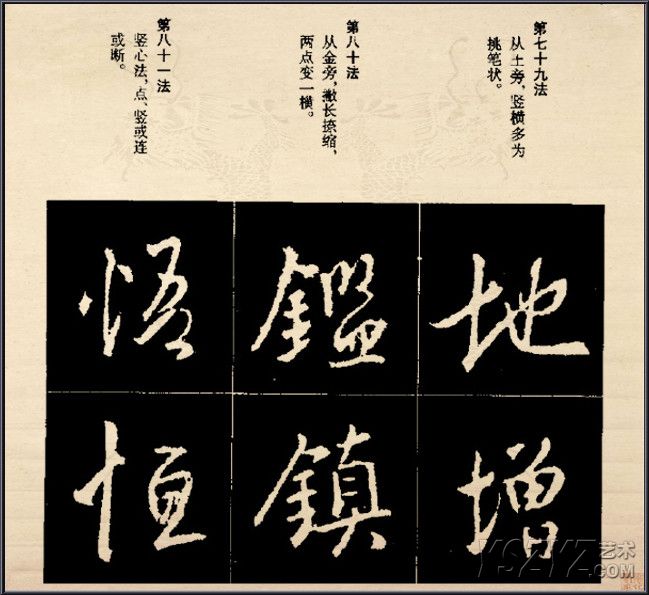 第七十九法
从土旁，竖横多为
挑笔状。
第八十法
从金旁，撇长捺缩，
两点变一横。
第八十一法
竖心法，点、竖或连
或断。
地
增
鑑
鎮
悟
恒
YSZYZ艺术
.COM